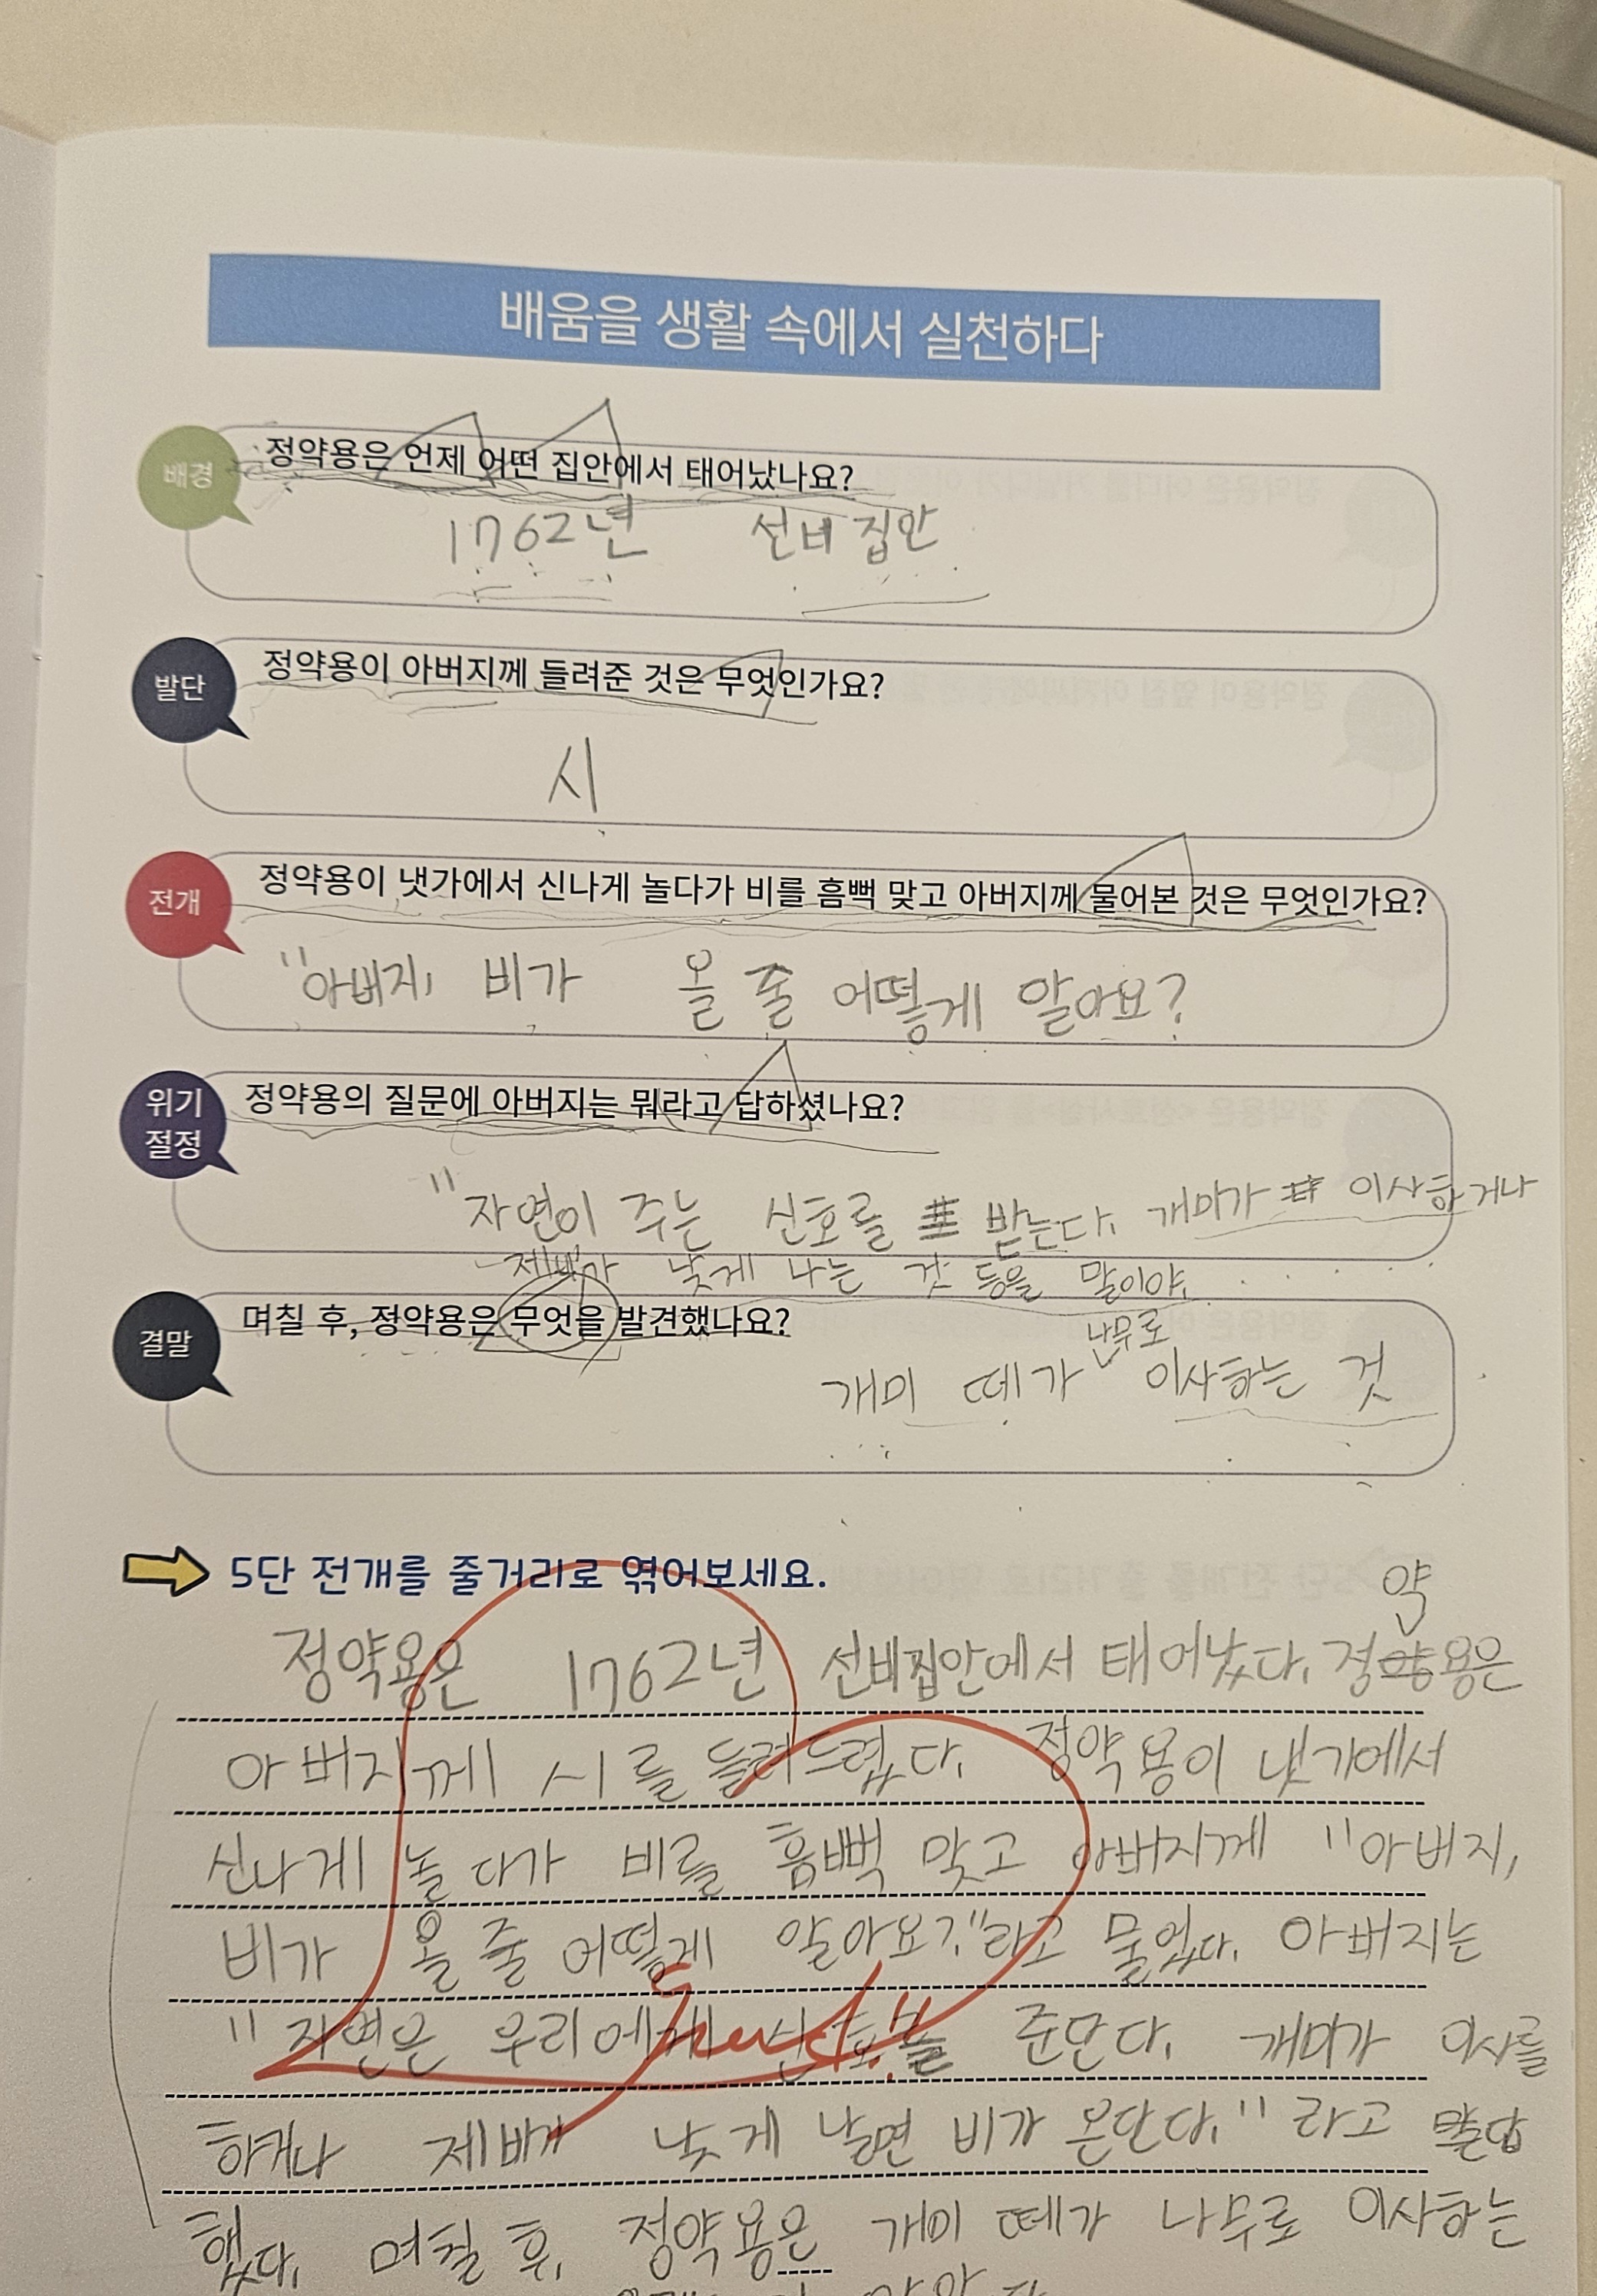 배움을 생활 속에서 실천하다
배경
정약용은 언제 어떤 집안에서 태어났나요?
1762년 선비 집안
발단
정약용이 아버지께 들려준 것은 무엇인가요?
시
전개
정약용이 냇가에서 신나게 놀다가 비를 흠뻑 맞고 아버지께 물어본 것은 무엇인가요?
"아버지, 비가 올 줄 어떻게 알아요?
위기
절정
정약용의 질문에 아버지는 뭐라고 답하셨나요?
"자연이 주는 신호를 받는다. 개미가 이사하거나
제비가 낮게 나는 것 등을 말이야.
결말
며칠 후, 정약용은 무엇을 발견했나요?
나무로
개미 떼가 이사하는 것
5단 전개를 줄거리로 엮어보세요.
약
정약용은 1762년 선비집안에서 태어났다. 정용은
아버지께 시를 들려드렸다. 정약용이 냇가에서
신나게 놀다가 비를 흠뻑 맞고 아버지께 "아버지,
비가 올 줄 어떻게 알아요?"라고 물었다. 아버지는
"자연은 우리에게 신호를 준단다. 개미가 이사를
하거나 제비가 낮게 날면 비가 온단다." 라고 답
했다. 며칠 후, 정약용은 개미 떼가 나무로 이사하는